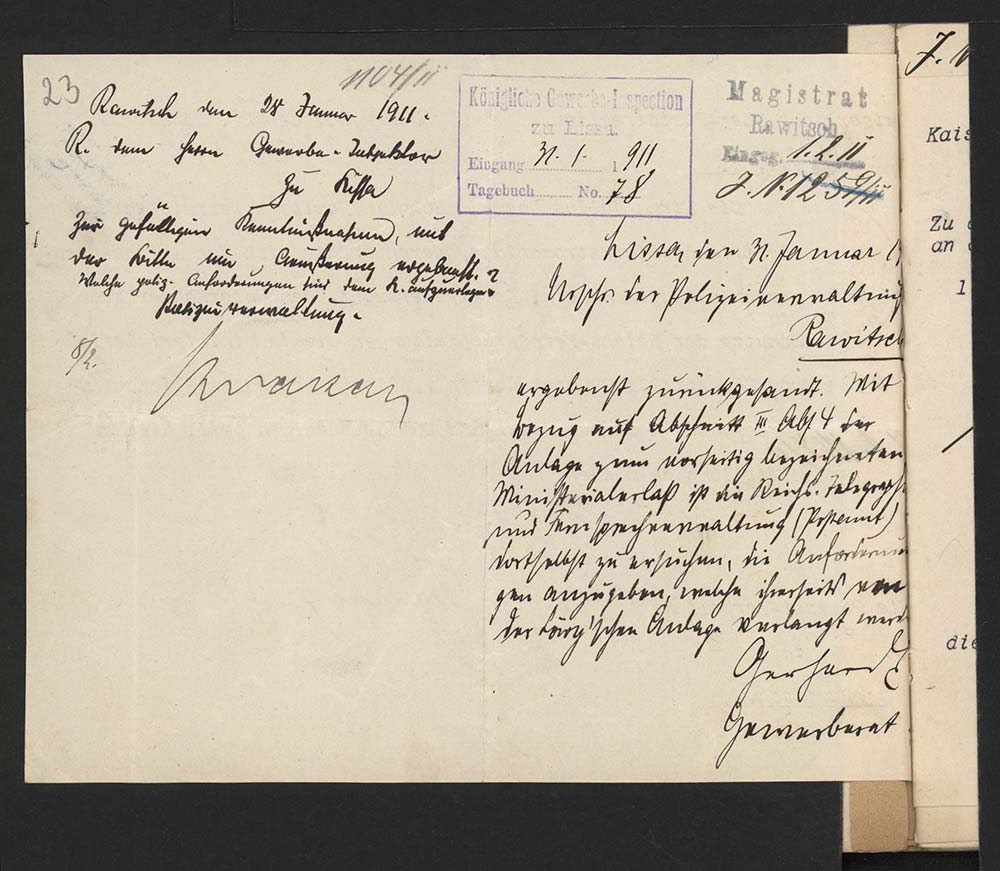 23
1104/II
Rawitsch den 28 Januar 1911.
R. dem Herrn Gewerbe-Inspektor
zu Lissa
Zur gefälligen Kenntnißnahme, mit
der Bitte um Aeußerung ergebenst.
Welche poliz. Anforderungen sind dem K. aufzuerlegen?
Polizeiverwaltung.
8/2.
Königliche Gewerbe-Inspection
zu Lissa.
Eingang 31.1. 1911
Tagebuch No. 78
Magistrat
Rawitsch
Eingeg. 1.2.11
J. N. 1259/11
Lissa, den 31. Januar 1
Urschr. der Polizeiverwaltung
Rawitsch
ergebenst zurückgesandt. Mit
Bezug auf Abschnitt III Abs 4 der
Anlage zum vorseitig bezeichneten
Ministerialerlaß ist die Reichs-Telegraphe
und Fernsprechverwaltung (Postamt)
dortselbst zu ersuchen, die Anforderun
gen anzugeben, welche ihrerseits von
der schen Anlage verlangt werd
Gerhard
Gewerberat
J. N
Kais
Zu
an
1
die